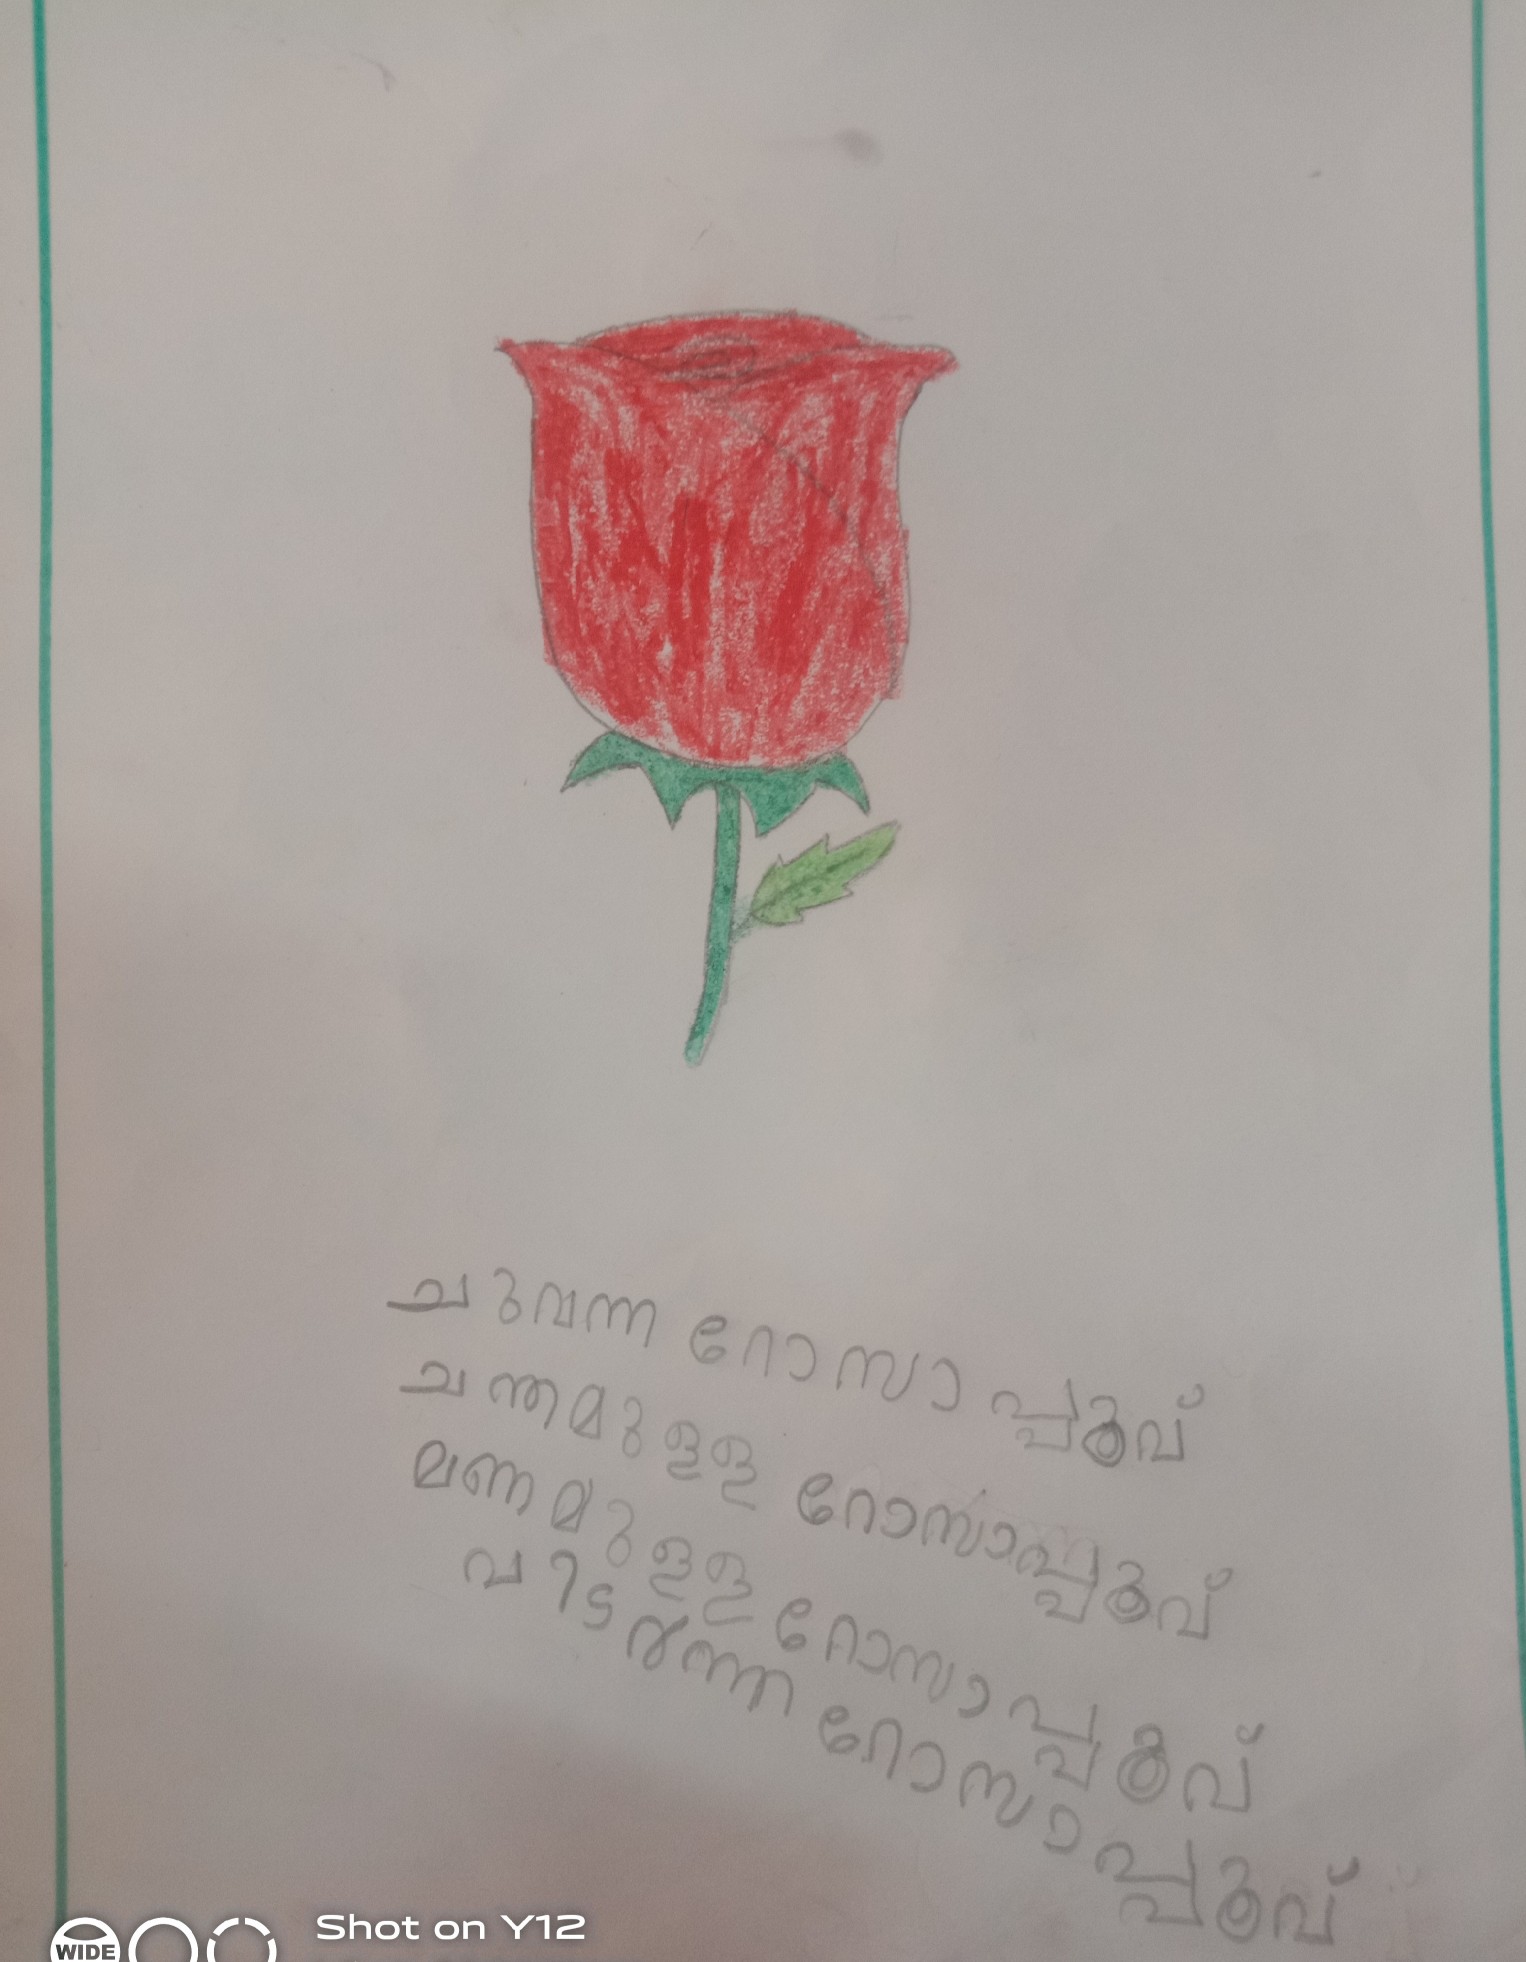 ചുവന്ന റോസാപ്പൂവ്
ചന്തമുള്ള റോസാപ്പൂവ്
മണമുള്ള റോസാപ്പൂവ്
വിടർന്ന റോസാപ്പൂവ്
WIDE Shot on Y12